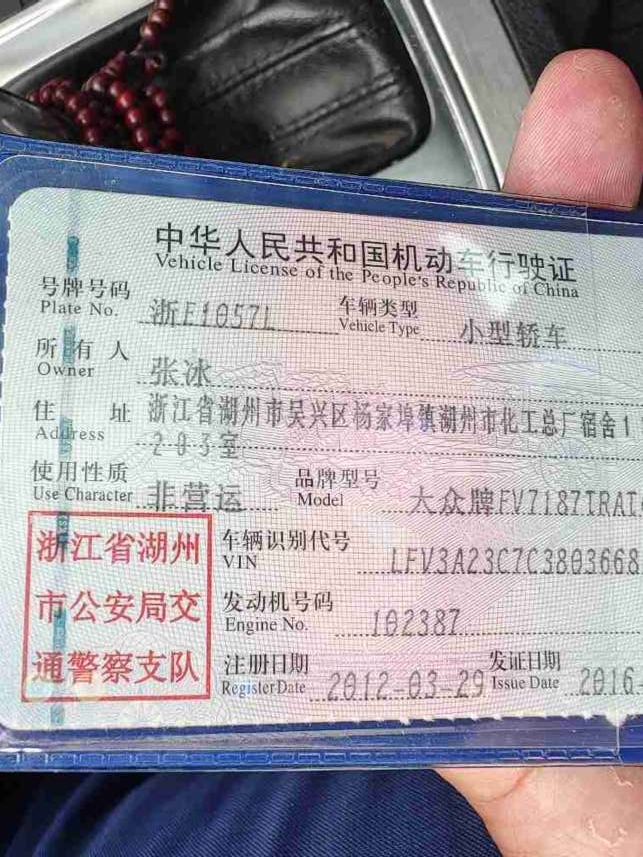 中华人民共和国机动车行驶证
Vehicle License of the People's Republic of China
号牌号码 浙E1057L 车辆类型 小型轿车
Plate No. Vehicle Type
所有人 张冰
Owner
住址 浙江省湖州市吴兴区杨家埠镇湖州市化工总厂宿舍1
Address 203室
使用性质 非营运 品牌型号 大众牌FV7187TRAT
Use Character Model
浙江省湖州
市公安局交
通警察支队
车辆识别代号 LFV3A23C7C3803668
VIN
发动机号码 102387
Engine No.
注册日期 2012-03-29 发证日期 2016-
Register Date Issue Date